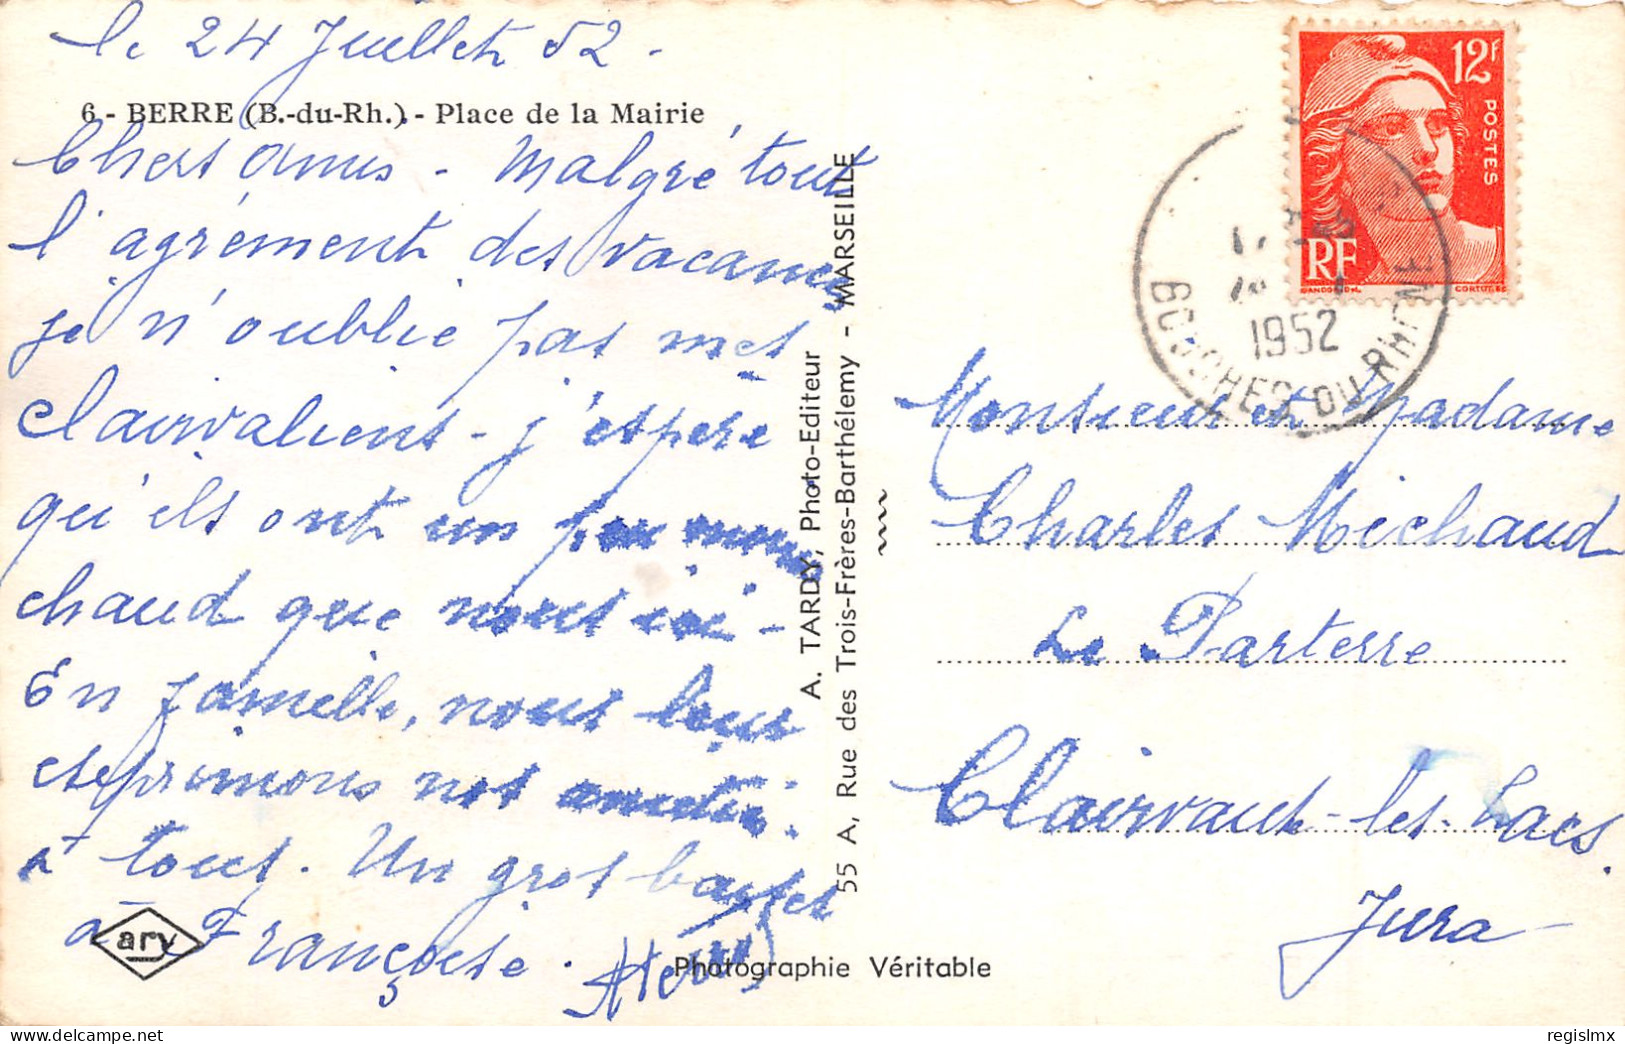 le 24 Juillet 52 -
6 - BERRE (B.-du-Rh.) - Place de la Mairie
Chers Amis - Malgré tout
l'agrément des vacances
je n'oublie pas mes
Clairvaliens - j'espère
qu'ils ont un peu moins
chaud que nous ici -
En famille, nous leurs
exprimons nos amitiés.
à tous. Un gros baiser
à Françoise.
ary
Photographie Véritable
A. TARDY, Photo-Editeur
55 A, Rue des Trois-Frères-Barthélemy - MARSEILLE
12F
POSTES
RF
GANDON
CORTOT
1952
BOUCHES DU RHONE
Monsieur et Madame
Charles Michaud
Le Parterre
Clairvaux-les-Lacs.
Jura
regislmx